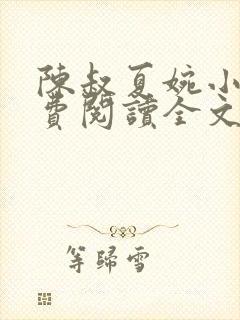 陳叔夏婉小
費閱讀全文
等歸雪